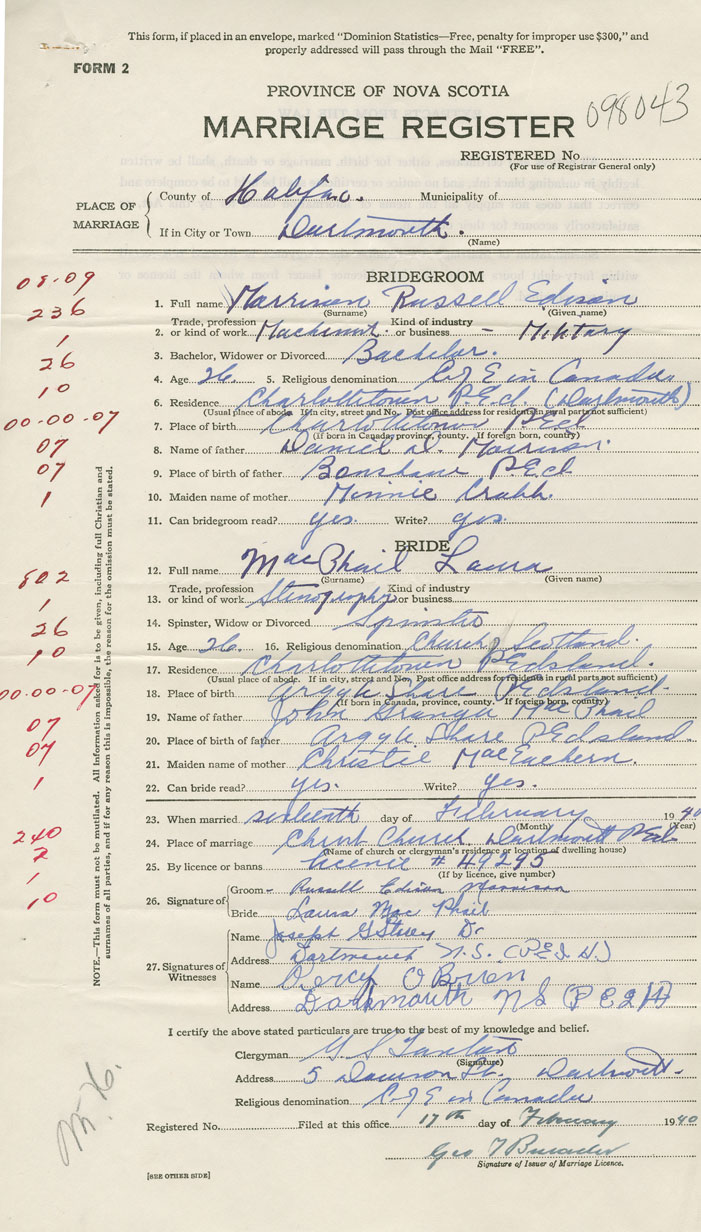 This form, if placed in an envelope, marked "Dominion Statistics—Free, penalty for improper use $300," and
properly addressed will pass through the Mail "FREE".
FORM 2
PROVINCE OF NOVA SCOTIA
098043
MARRIAGE REGISTER
REGISTERED No.
(For use of Registrar General only)
PLACE OF MARRIAGE
County of Halifax. Municipality of
If in City or Town Dartmouth.
(Name)
BRIDEGROOM
08-09
1. Full name Morrison Russell Edison
(Surname) (Given name)
236
2. Trade, profession or kind of work Machinist. Kind of industry or business - Military
1
3. Bachelor, Widower or Divorced Bachelor.
26
4. Age 26. 5. Religious denomination C of E in Canada
10
6. Residence Charlottetown P.E.I. (Dartmouth)
(Usual place of abode. If in city, street and No. Post office address for residents in rural parts not sufficient)
00-00-07
7. Place of birth Charlottetown P.E.I.
(If born in Canada, province, county. If foreign born, country)
07
8. Name of father Daniel D. Morrison.
07
9. Place of birth of father Bonshaw P.E.I.
1
10. Maiden name of mother Minnie Crabb.
11. Can bridegroom read? yes. Write? yes.
BRIDE
12. Full name MacPhail Laura
(Surname) (Given name)
802
13. Trade, profession or kind of work Stenography Kind of industry or business
1
14. Spinster, Widow or Divorced Spinster
26
15. Age 26. 16. Religious denomination Church of Scotland.
10
17. Residence Charlottetown P.E. Island.
(Usual place of abode. If in city, street and No. Post office address for residents in rural parts not sufficient)
00-00-07
18. Place of birth Argyle Shore P.E. Island.
(If born in Canada, province, county. If foreign born, country)
19. Name of father John MacPhail
07
20. Place of birth of father Argyle Shore P.E. Island.
07
21. Maiden name of mother Christie MacEachern.
1
22. Can bride read? yes. Write? yes.
23. When married sixteenth day of February 1940
(Month) (Year)
240
24. Place of marriage Christ Church, Dartmouth
(Name of church or clergyman's residence or location of dwelling house)
2
25. By licence or banns licence # 49295
(If by licence, give number)
1
10
26. Signature of
Groom - Russell Edison Morrison
Bride Laura MacPhail
27. Signatures of Witnesses
Name Joseph
Address Dartmouth N.S. (P.E.I. H.)
Name Percy O'Brien
Address Dartmouth N S (P E I H)
NOTE.—This form must not be mutilated. All information asked for is to be given, including full Christian and
surnames of all parties, and if for any reason this is impossible, the reason for the omission must be stated.
I certify the above stated particulars are true to the best of my knowledge and belief.
Clergyman
(Signature)
Address 5 Dawson St. Dartmouth
Religious denomination C of E in Canada
Registered No. Filed at this office 17th day of February 1940
Geo T
Signature of Issuer of Marriage Licence.
[SEE OTHER SIDE]